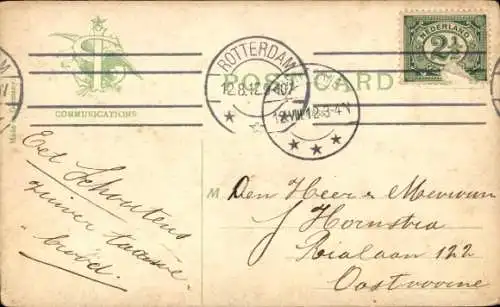 COMMUNICATIONS
POST CARD
ROTTERDAM
12.8.12
12.VIII.12.3-4V
NEDERLAND
2½
Made in Germany
Eet Schoutens
zuiver tarwe
brood.
M
Den Heer & Mevrouw
J Hoornstra
Rialaan 122
Oostvoorne